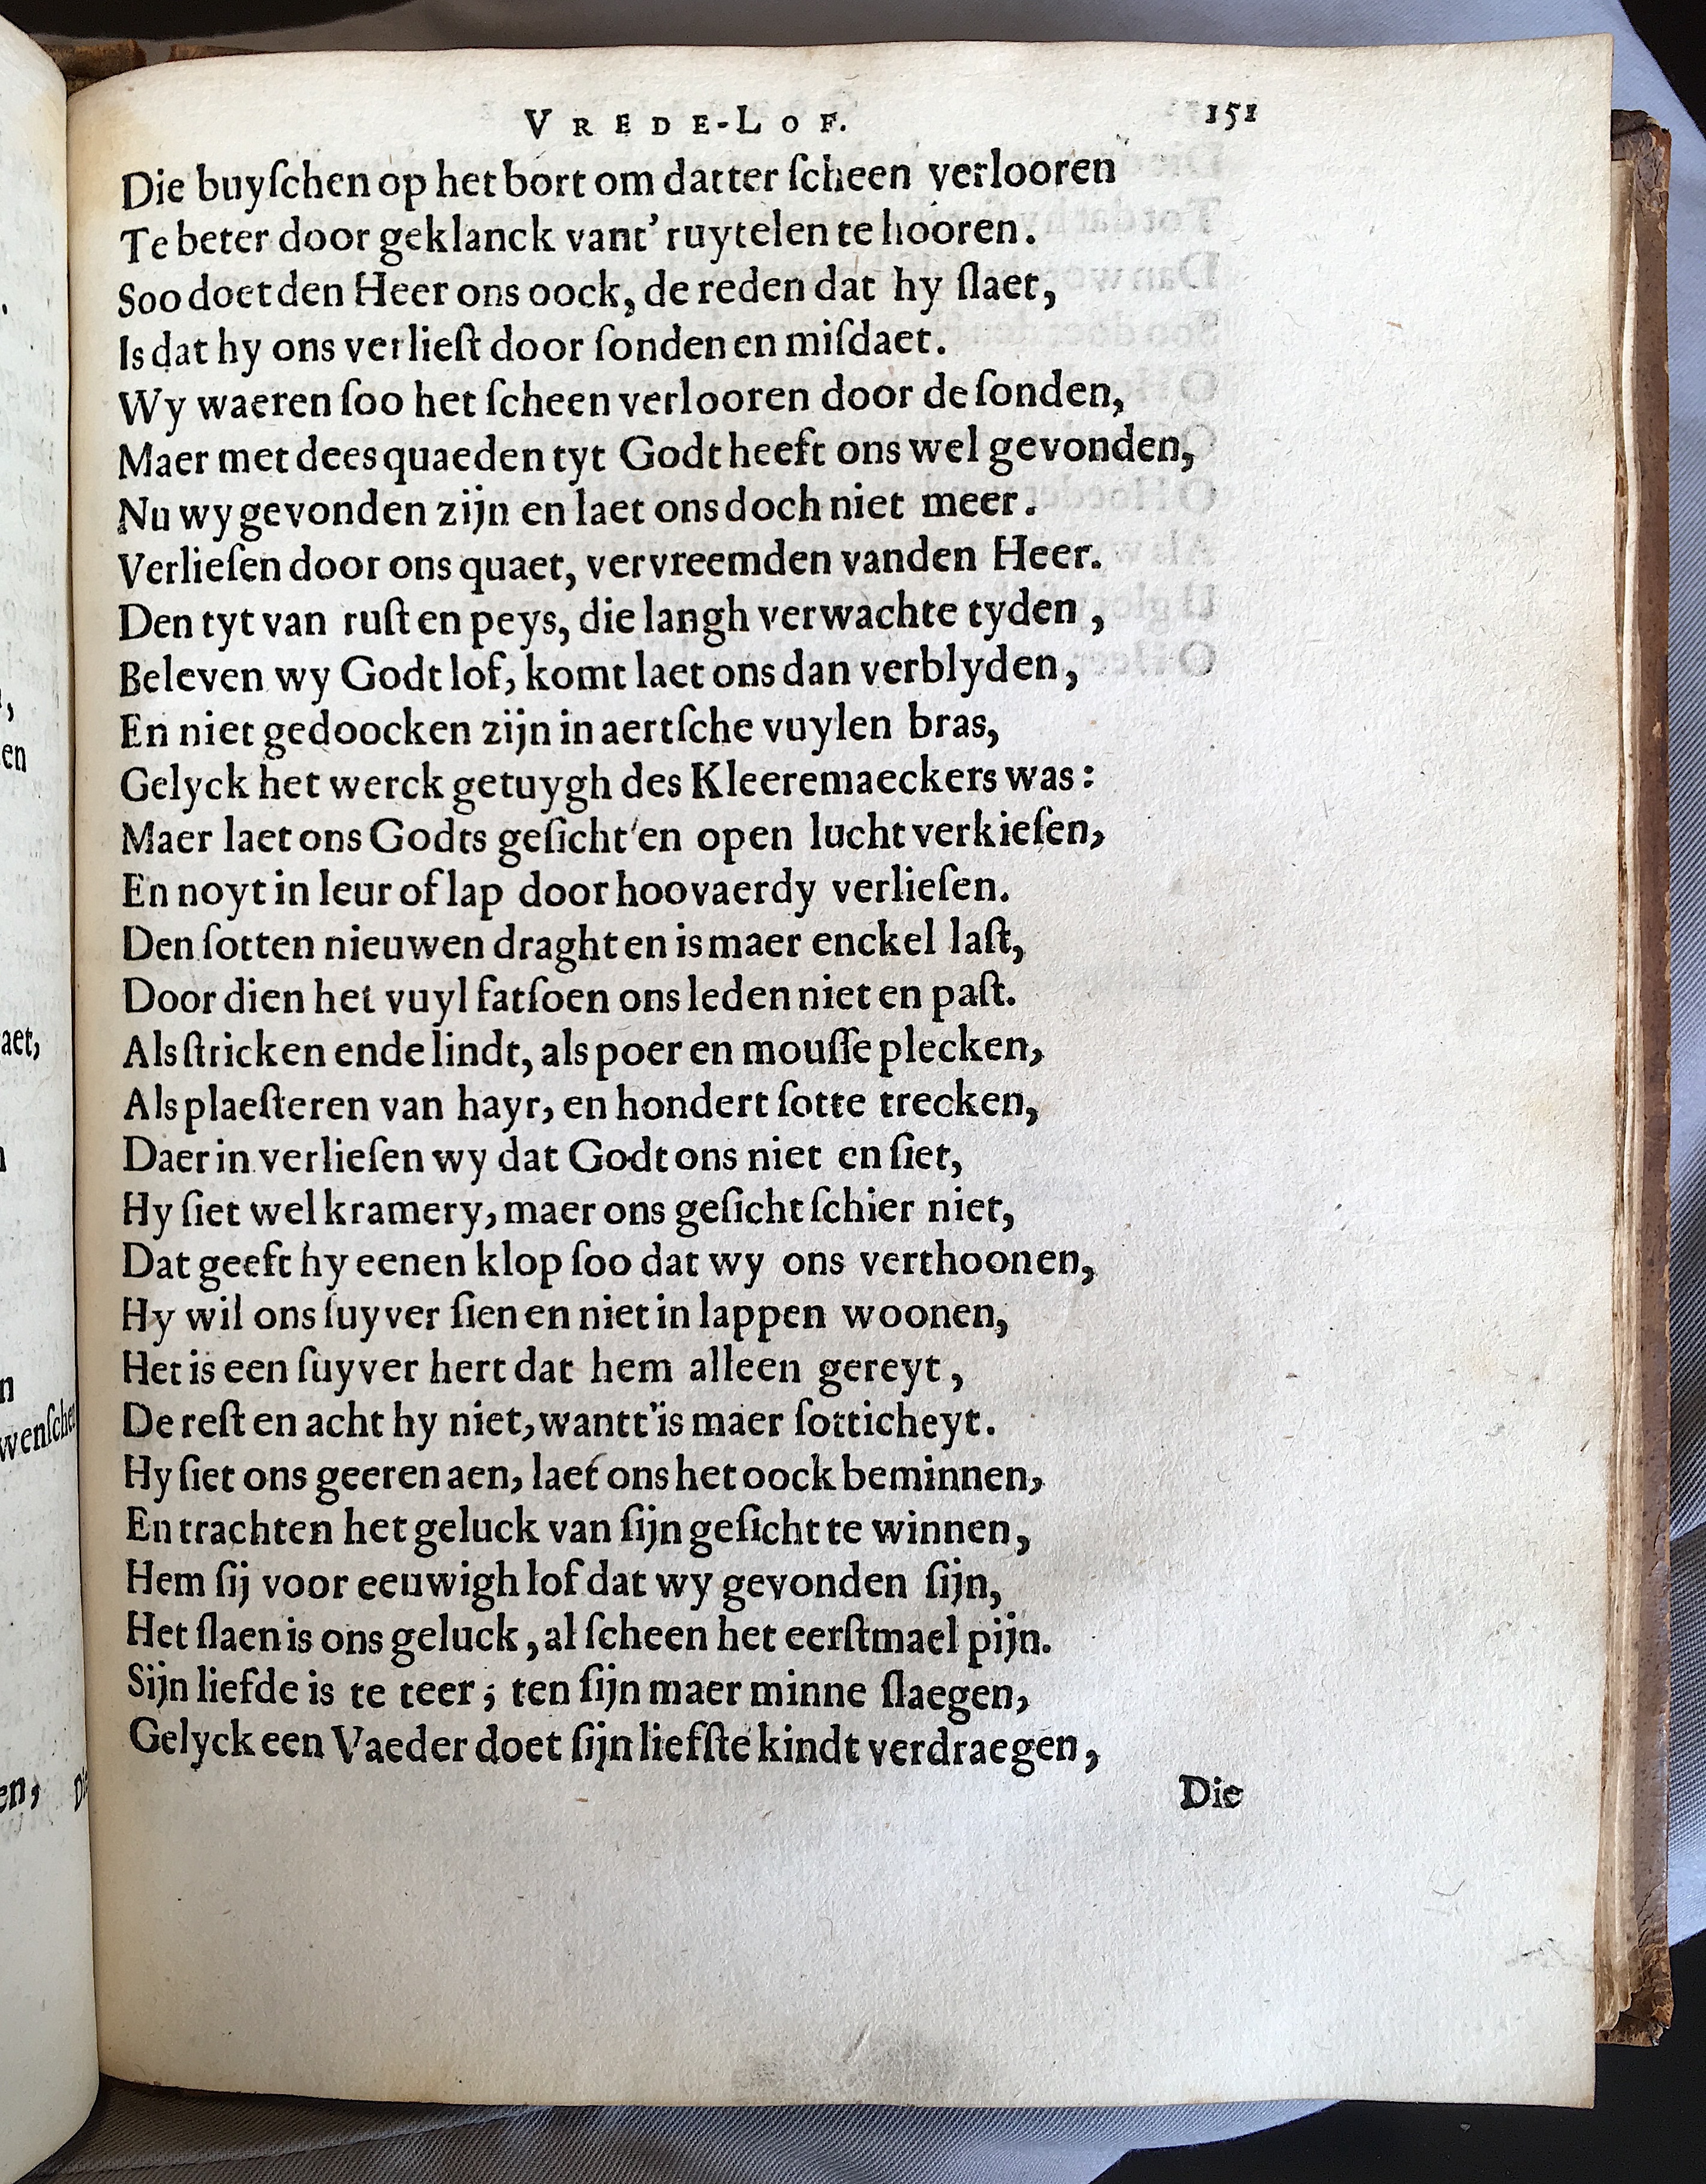 VREDE-LOF. 151
Die buyſchen op het bort om datter ſcheen verlooren
Te beter door geklanck vant' ruytelen te hooren.
Soo doet den Heer ons oock, de reden dat hy ſlaet,
Is dat hy ons verlieſt door ſonden en miſdaet.
Wy waeren ſoo het ſcheen verlooren door de ſonden,
Maer met dees quaeden tyt Godt heeft ons wel gevonden,
Nu wy gevonden zijn en laet ons doch niet meer.
Verlieſen door ons quaet, vervreemden vanden Heer.
Den tyt van ruſt en peys, die langh verwachte tyden,
Beleven wy Godt lof, komt laet ons dan verblyden,
En niet gedoocken zijn in aertſche vuylen bras,
Gelyck het werck getuygh des Kleeremaeckers was:
Maer laet ons Godts geſicht'en open lucht verkieſen,
En noyt in leur of lap door hoovaerdy verlieſen.
Den ſotten nieuwen draght en is maer enckel laſt,
Door dien het vuyl fatſoen ons leden niet en paſt.
Als ſtricken ende lindt, als poer en mouſſe plecken,
Als plaeſteren van hayr, en hondert ſotte trecken,
Daer in verlieſen wy dat Godt ons niet en ſiet,
Hy ſiet wel kramery, maer ons geſicht ſchier niet,
Dat geeft hy eenen klop ſoo dat wy ons verthoonen,
Hy wil ons ſuyver ſien en niet in lappen woonen,
Het is een ſuyver hert dat hem alleen gereyt,
De reſt en acht hy niet, wantt'is maer ſotticheyt.
Hy ſiet ons geeren aen, laet ons het oock beminnen,
En trachten het geluck van ſijn geſicht te winnen,
Hem ſij voor eeuwigh lof dat wy gevonden ſijn,
Het ſlaen is ons geluck, al ſcheen het eerſtmael pijn.
Sijn liefde is te teer; ten ſijn maer minne ſlaegen,
Gelyck een Vaeder doet ſijn liefſte kindt verdraegen,
Die